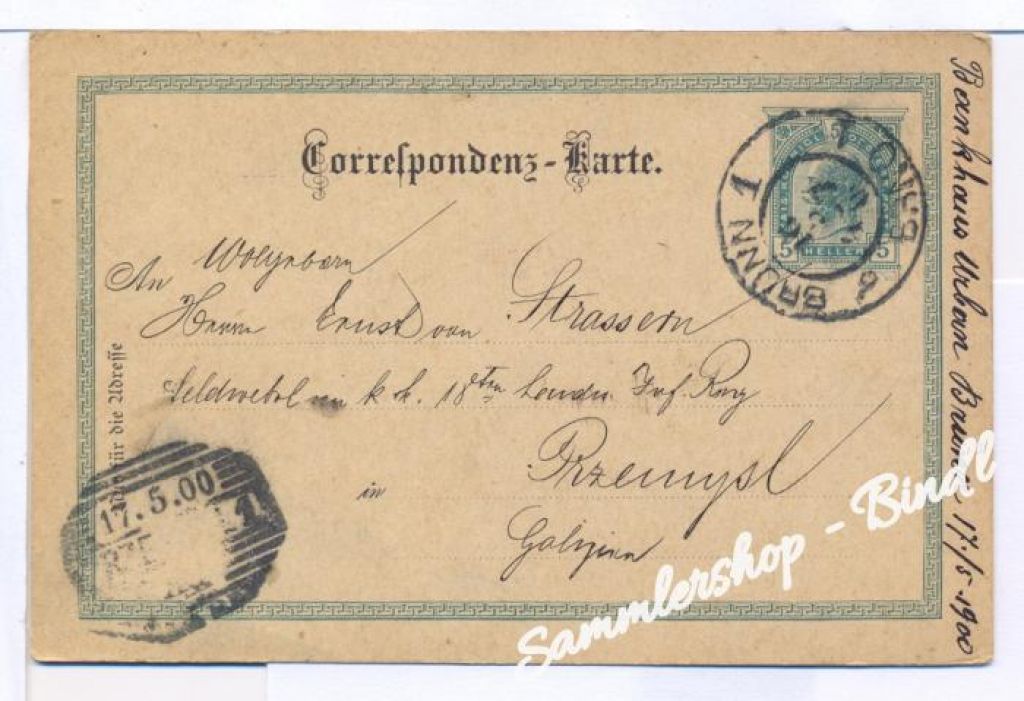 Correspondenz-Karte.
5
5 HELLER 5
BRÜNN 1
BRNO 1
An
Herrn Ernst von Strassern
Feldwebel im k. k. 18ten Landw. Inf. Reg
in Przemysl
Galizien
für die Adresse
17.5.00
1
Bankhaus Urban Brünn 17./5.1900
Sammlershop - Bindl